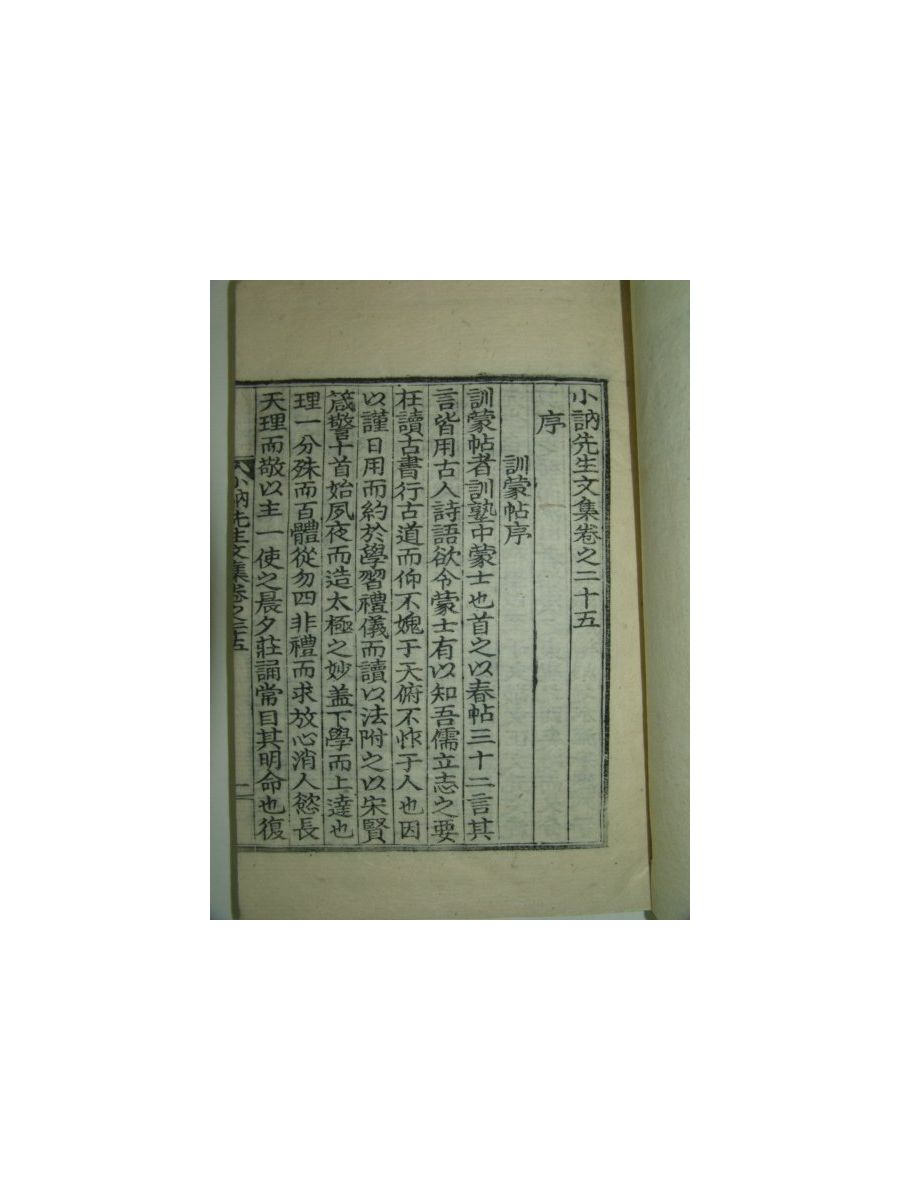 小訥先生文集卷之二十五
序
訓蒙帖序
訓蒙帖者訓塾中蒙士也首之以春帖三十二言其
言皆用古人詩語欲令蒙士有以知吾儒立志之要
在讀古書行古道而仰不媿于天俯不怍于人也因
以謹日用而約於學習禮儀而讀以法附之以宋賢
箴警十首始夙夜而造太極之妙盖下學而上達也
理一分殊而百體從勿四非禮而求放心消人慾長
天理而敬以主一使之晨夕莊誦常目其明命也復
小訥先生文集卷之二十五
一